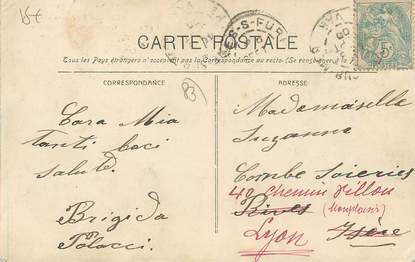 15€
CARTE POSTALE
Tous les Pays étrangers n'acceptent pas la Correspondance au recto. (Se renseigner à la
CORRESPONDANCE
ADRESSE
83
Cara Mia
tanti baci
salute.
Brigida
Polacci.
Mademoiselle
Suzanne
Combe Soieries
40 Chemin Villon
Rives (Monplaisir)
Lyon Isère